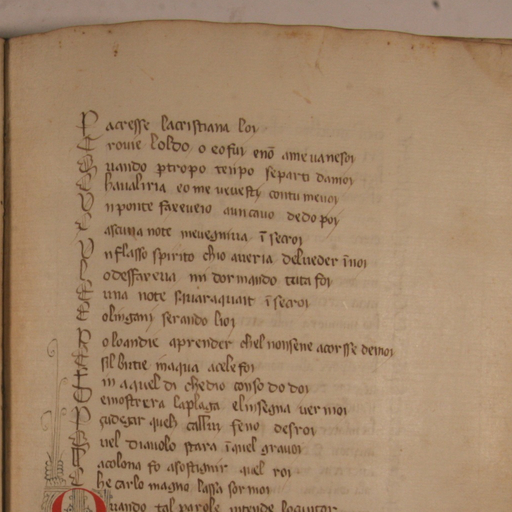 P acresse la cristiana loi
rovie loldo o eo fui enō ame vanesoi
vando ptropo tenpo separti damoi
havaliria eo me vevesti contu mevoi
n ponte fare veio aun cavo dedo poi
ascuna note mevegniva ī secroi
n flasso spirito chio averia delueder īnoi
o desfareva mi dormando tuta foi
una note ī secroi
olingani serando lioi
o loandie aprender chel nonsene acorsse demoi
sil butie inaqua acele foi
in aquel di chedio conso do doi
emostrera laplaga elinsegna ver moi
çudegar queli feno desroi
vel diavolo stara ī quel gravoi
acolona fo asostignir quel roi
he carlo magno lassa sor moi
Quando tal parole intende